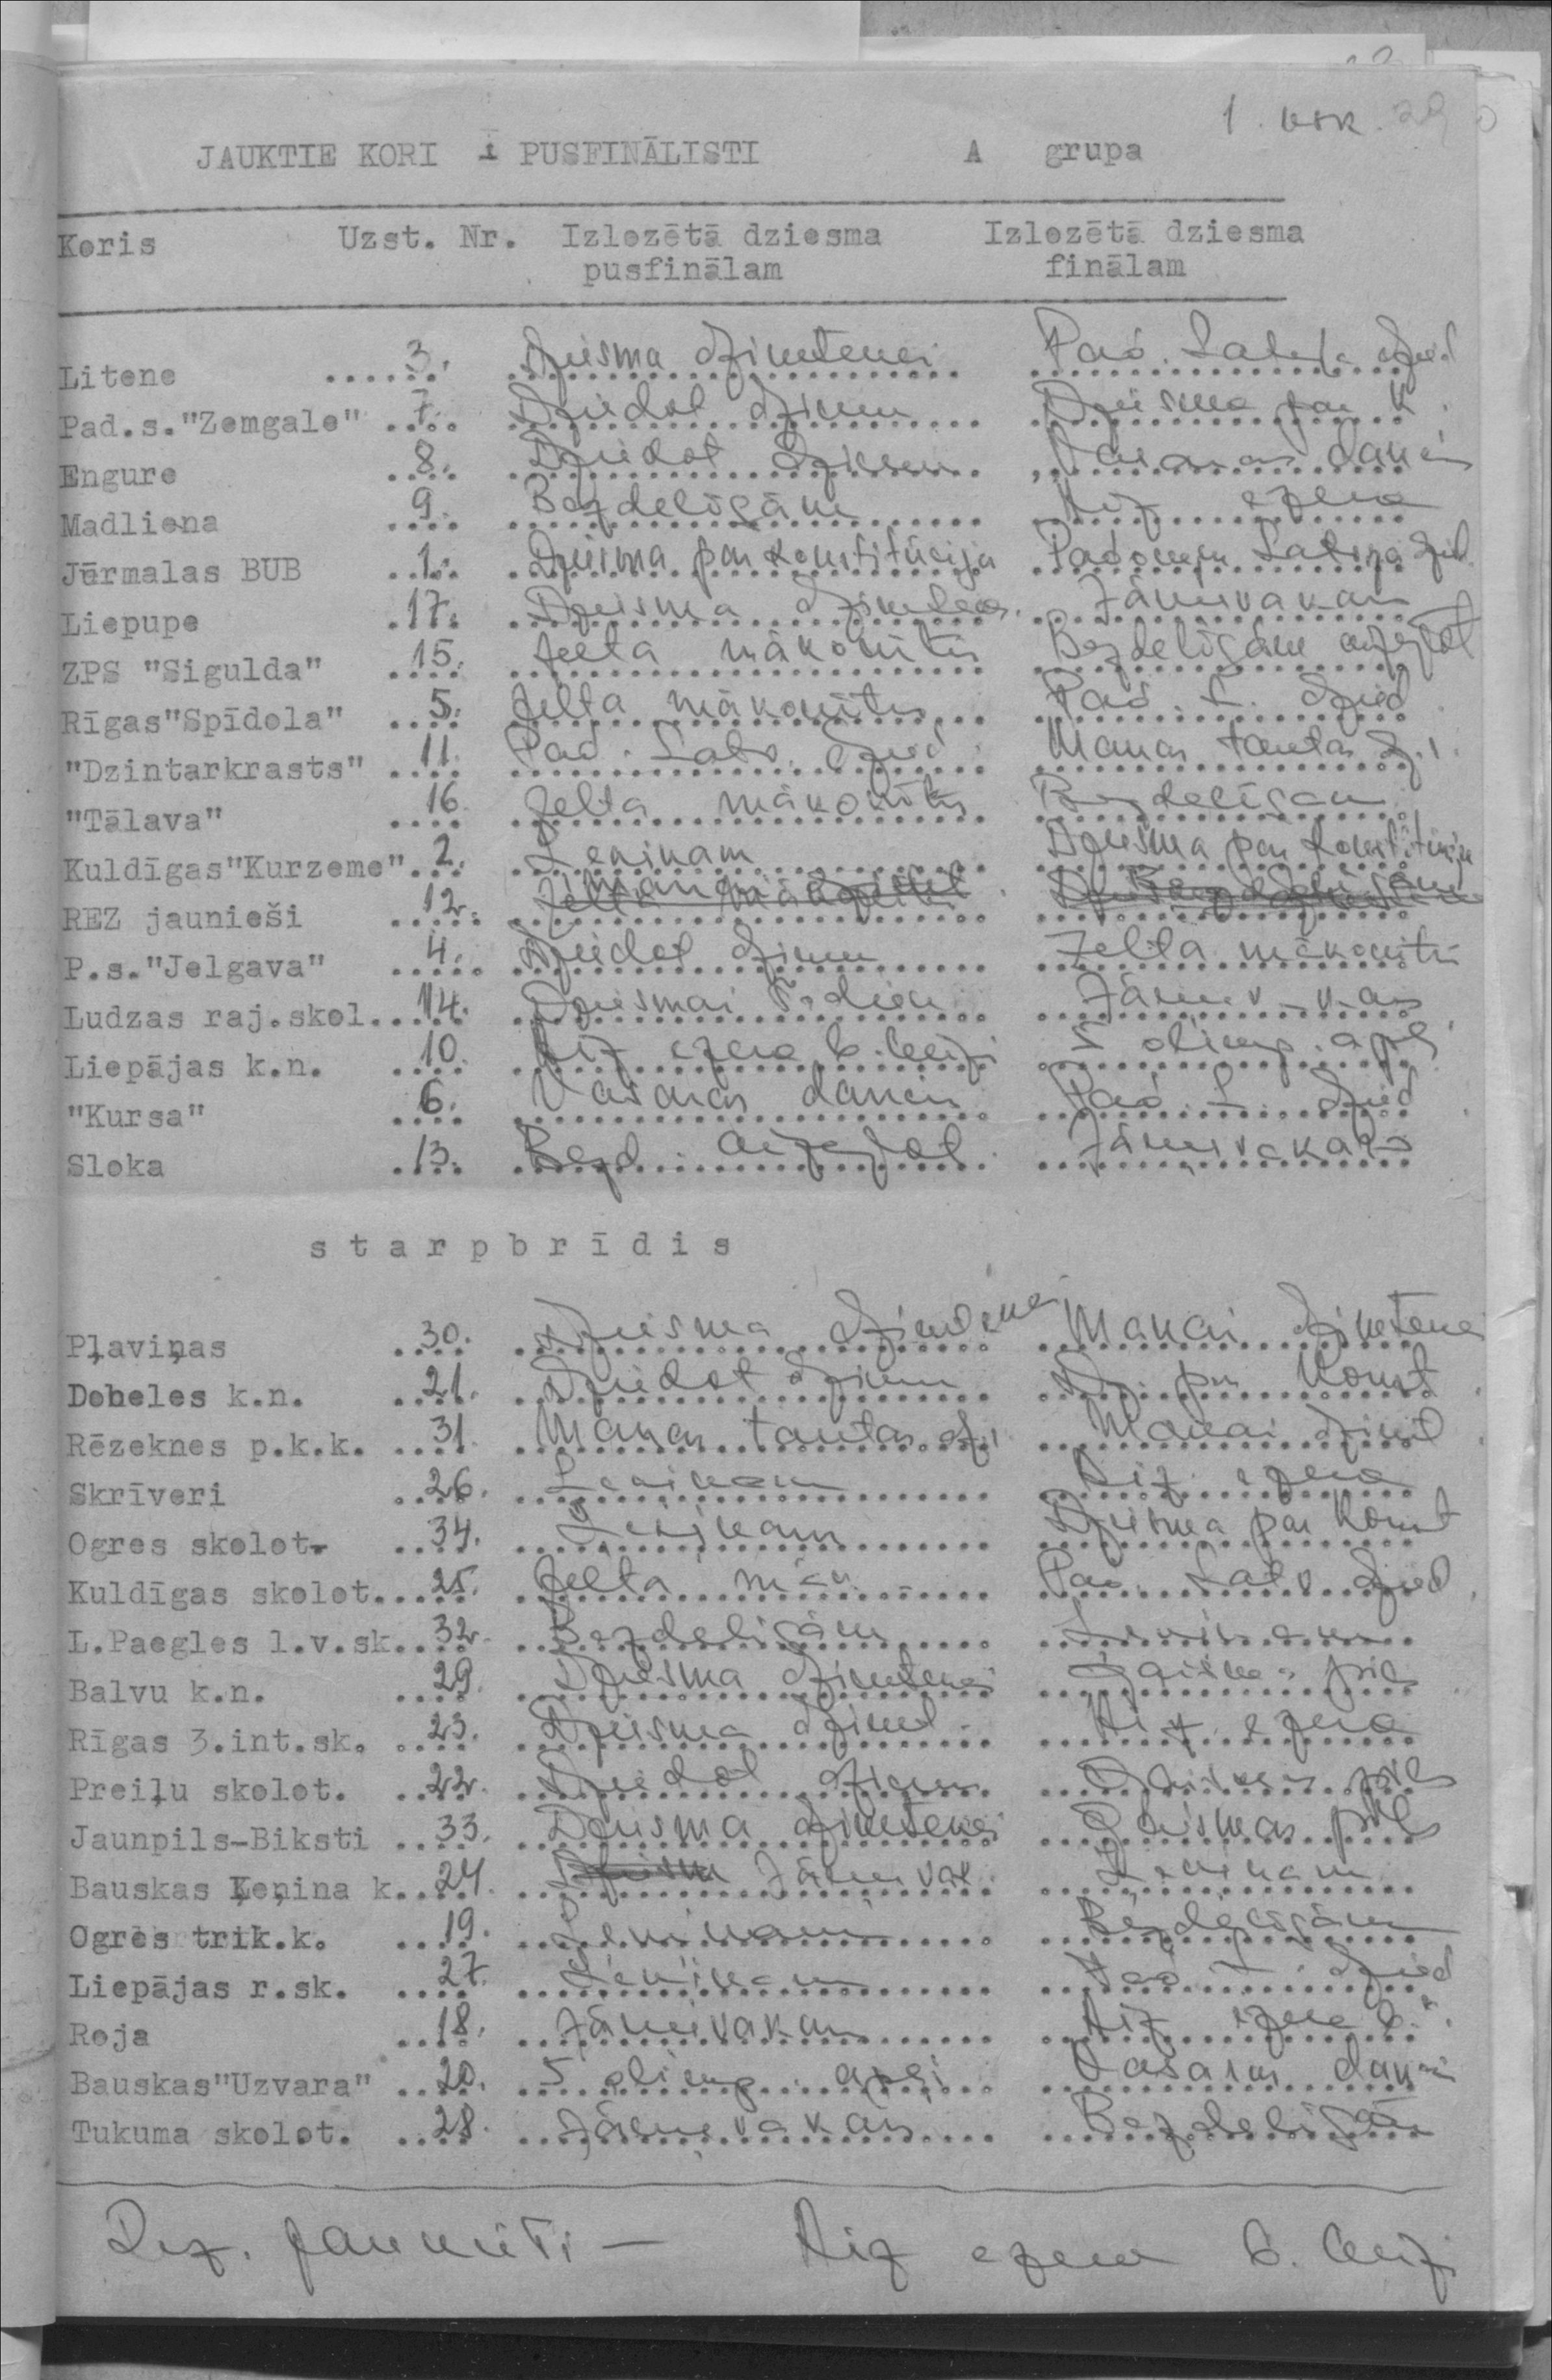 1. vok. 29
JAUKTIE KORI I PUSFINĀLISTI A grupa
Koris Uzst. Nr. Izlozētā dziesma pusfinālam Izlozētā dziesma finālam
Litene ...... 3. Dziesma dzimtenei Pad. Latvija dzied
Pad.s."Zemgale" .... 7. Dziedot dzimu Dziesma par K.
Engure .... 8. Dziedot dzimu Vasaras dancis
Madliena .... 9. Bezdelīgām Aiz ezera
Jūrmalas BUB .... 1. Dziesma par Konstitūciju Padomju Latvija dzied
Liepupe .... 17. Dziesma dzimtenei Jāņuvakars
ZPS "Sigulda" .... 15. Zelta mākonītis Bezdelīgām aizejot
Rīgas"Spīdola" .... 5. Zelta mākonītis Pad. L. dzied
"Dzintarkrasts" .... 11. Pad. Latv. dzied Manas tautas dz.
"Tālava" .... 16. Zelta mākonītis Bezdelīgām
Kuldīgas"Kurzeme" ... 2. Ļeņinam Dziesma par Konstitūciju
REZ jaunieši .... 12.
P.s."Jelgava" ..... 4. Dziedot dzimu Zelta mākonītis
Ludzas raj.skol. .... 14. Dziesmai šodien Jāņuv-v-ars
Liepājas k.n. .... 10. Aiz ezera b. bērzi 5 olimp. apļi
"Kursa" .... 6. Vasaras dancis Pad. L. dzied
Sloka .... 13. Bezd. aizejot Jāņuvakars
starpbrīdis
Pļaviņas .... 30. Dziesma dzimtenei Manai dzimtenei
Dobeles k.n. .... 21. Dziedot dzimu Dz. par Konst.
Rēzeknes p.k.k. .... 31. Manas tautas dz. Manai dzimt.
Skrīveri .... 26. Ļeņinam Aiz ezera
Ogres skolot. .... 34. Ļeņinam Dziesma par Konst
Kuldīgas skolot. .... 25. Zelta māk. Pad. Latv. dzied
L.Paegles l.v.sk. ... 32. Bezdelīgām Ļeņinam
Balvu k.n. .... 29. Dziesma dzimtenei Gaismas pils
Rīgas 3.int.sk. .... 23. Dziesma dzimt. Aiz ezera
Preiļu skolot. .... 22. Dziedot dzimu Gaismas pils
Jaunpils-Biksti .... 33. Dziesma dzimtenei Gaismas pils
Bauskas Ļeņina k. .... 24. Jāņuvak. Ļeņinam
Ogres trik.k. .... 19. Ļeņinam Bezdelīgām
Liepājas r.sk. .... 27. Ļeņinam Pad. L. dzied
Roja .... 18. Jāņuvakars Aiz ezera b.
Bauskas"Uzvara" .... 20. 5 olimp. apļi Vasaras dancis
Tukuma skolot. .... 28. Jāņuvakars Bezdelīgām
Rez. jaunieši — Aiz ezera b. bērzi